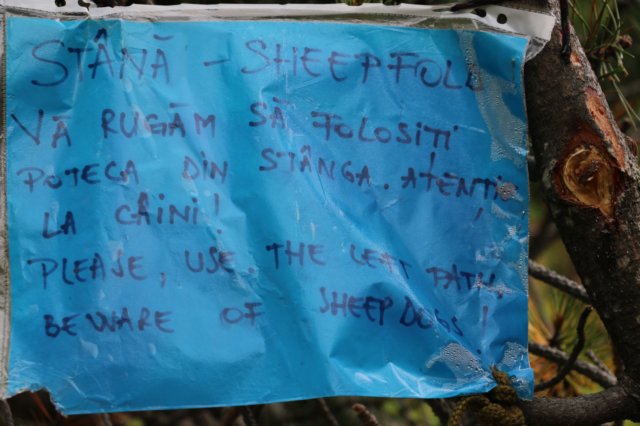 STÂNĂ - SHEEPFOLD!
VĂ RUGĂM SĂ FOLOSIȚI
POTECA DIN STÂNGA. ATENȚIE
LA CÂINI!
PLEASE, USE THE LEFT PATH,
BEWARE OF SHEEP DOGS!